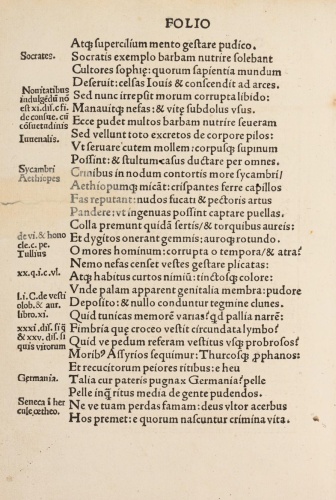 FOLIO
Atq́ supercilium mento gestare pudico.
Socrates.
Socratis exemplo barbam nutrire solebant
Cultores sophię: quorum sapientia mundum
Deseruit: celsas Iouis & conscendit ad arces.
Nouitatibus
indulgēdū nō
est xi. dis. c̄fi.
de consue. cū
cōsuetudinis
Sed nunc irrepsit morum corrupta libido:
Manauitq́ nefas: & vitę subdolus vsus.
Ecce pudet multos barbam nutrire seueram
Iuuenalis.
Sed vellunt toto excretos de corpore pilos:
Vt seruare cutem mollem: corpusq́ supinum
Possint: & stultum casus ductare per omnes.
Sycambri
Aethiopes
Crinibus in nodum contortis more sycambri/
Aethiopumq́ micāt: crispantes ferre capillos
Fas reputant: nudos fucati & pectoris artus
Pandere: vt ingenuas possint captare puellas.
Colla premunt quidā sertis/ & torquibus aureis:
de vi. & hono
cle. c. pe.
Tullius
Et dygitos onerant gemmis: auroq́ rotundo.
O mores hominum: corrupta o tempora/ & atra?
Nemo nefas censet vestes gestare plicatas:
xx. q. ic. vl.
Atq́ habitus curtos nimiū: tinctosq́ colore:
Vnde palam apparent genitalia membra: pudore
l. i. C. de vesti
olob. & aur.
libro. xi.
Deposito: & nullo conduntur tegmine clunes.
Quid tunicas memorē varias? qd pallia narrē:
xxxi dis. si q̄
& xxv. dis. si
quis virorum
Fimbria quę croceo vestit circundata lymbo?
Quid ve pedum referam vestitus vsq́ probrosos?
Morib⁹ Assyrios sequimur: Thurcosq́ ꝓphanos:
Et recutitorum peiores ritibus: e heu
Germania.
Talia cur pateris pugnax Germania? pelle
Pelle inq̄ ritus media de gente pudendos.
Seneca ī her
cule, œtheo.
Ne ve tuam perdas famam: deus vltor acerbus
Hos premet: e quorum nascuntur crimina vita.